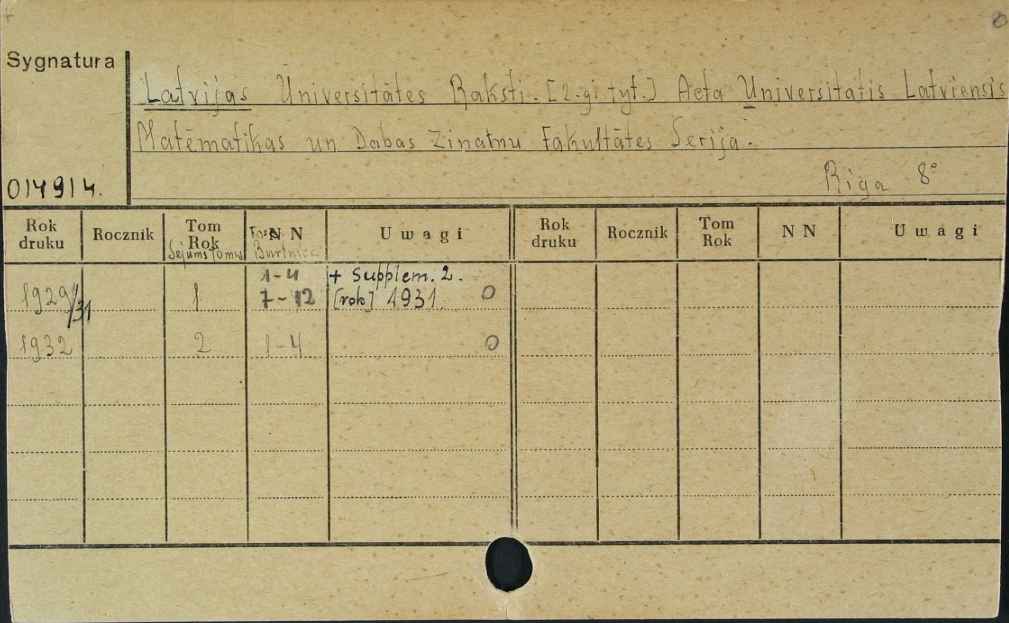 Sygnatura
Latvijas Universitātes Raksti. [2-gi tyt.] Acta Universitatis Latviensis
Matēmatikas un Dabas Zinatnu Fakultātes Serija.
Riga 8°
014914.
Rok druku Rocznik Tom Rok NN Uwagi Rok druku Rocznik Tom Rok NN Uwagi
Sejums Tomus Burtnica
1-4 + Supplem. 2.
1929/31 1 7-12 [rok] 1931. 0
1932 2 1-4 0